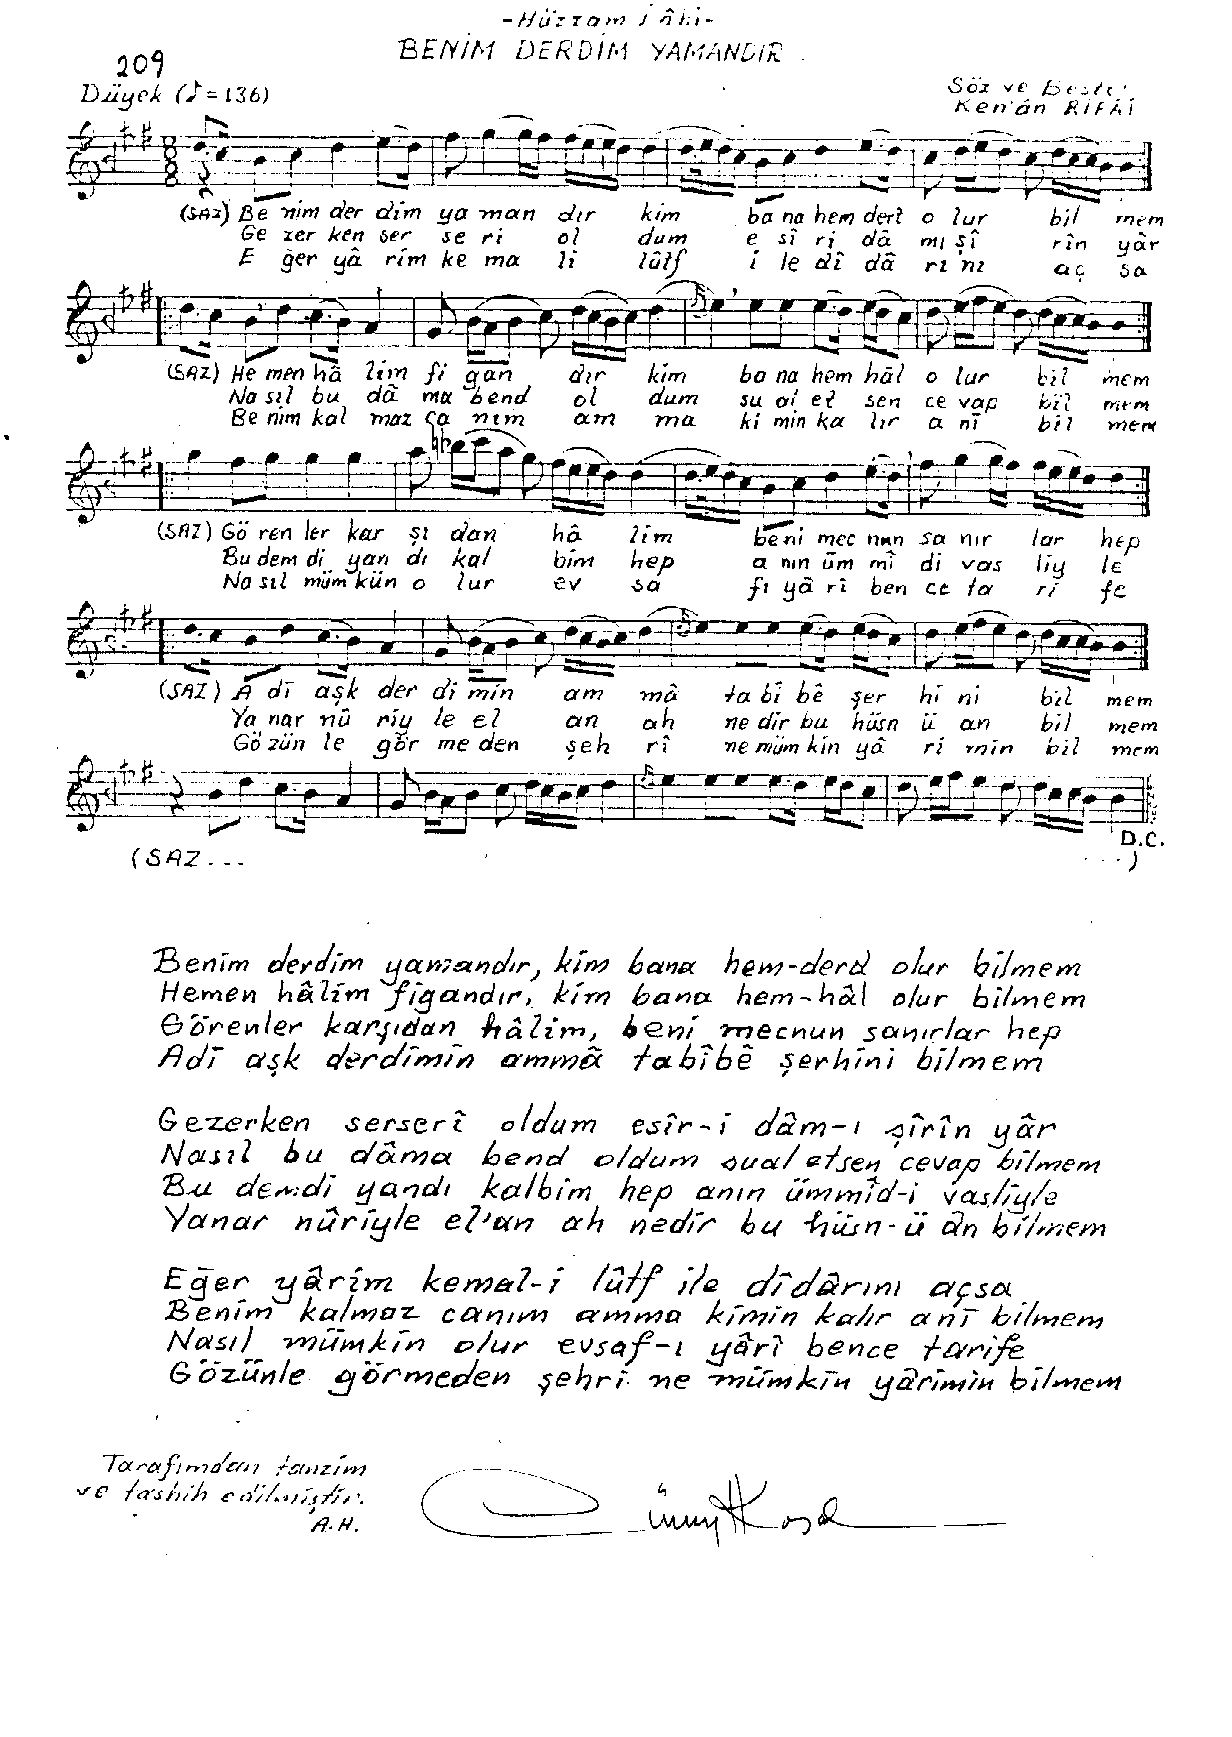 -Hüzzam İlâhi-
BENİM DERDİM YAMANDIR
209
Düyek (♪=136)
Söz ve Beste:
Ken'ân RİFÂÎ
(SAZ) Be nim der dim ya man dır kim ba na hem derd o lur bil mem
Ge zer ken ser se ri ol dum e sî ri dâ mı şî rîn yâr
E ğer yâ rim ke ma li lûtf i le dî dâ rı nı aç sa
(SAZ) He men hâ lim fi gan dır kim ba na hem hâl o lur bil mem
Na sıl bu dâ ma bend ol dum su al et sen ce vap bil mem
Be nim kal maz ca nım am ma ki min ka lır a nî bil mem
(SAZ) Gö ren ler kar şı dan hâ lim be ni mec nun sa nır lar hep
Bu dem di yan dı kal bim hep a nın üm mî di vas liy le
Na sıl müm kün o lur ev sa fı yâ rî ben ce ta ri fe
(SAZ) A dî aşk der di min am mâ ta bî bê şer hi ni bil mem
Ya nar nû riy le el an ah ne dir bu hüsn ü an bil mem
Gö zün le gör me den şeh rî ne müm kin yâ ri min bil mem
D.C.
(SAZ... ...)
Benim derdim yamandır, kim bana hem-derd olur bilmem
Hemen hâlim figandır, kim bana hem-hâl olur bilmem
Görenler karşıdan hâlim, beni mecnun sanırlar hep
Adî aşk derdimin ammâ tabîbê şerhini bilmem
Gezerken serserî oldum esîr-i dâm-ı şîrîn yâr
Nasıl bu dâma bend oldum sual etsen cevap bilmem
Bu demdi yandı kalbim hep anın ümmîd-i vasliyle
Yanar nûriyle el'an ah nedir bu hüsn-ü ân bilmem
Eğer yârim kemal-i lûtf ile dîdârını açsa
Benim kalmaz canım amma kimin kalır anî bilmem
Nasıl mümkin olur evsaf-ı yârî bence tarife
Gözünle görmeden şehri ne mümkin yârimin bilmem
Tarafımdan tanzim
ve tashih edilmiştir.
A.H.